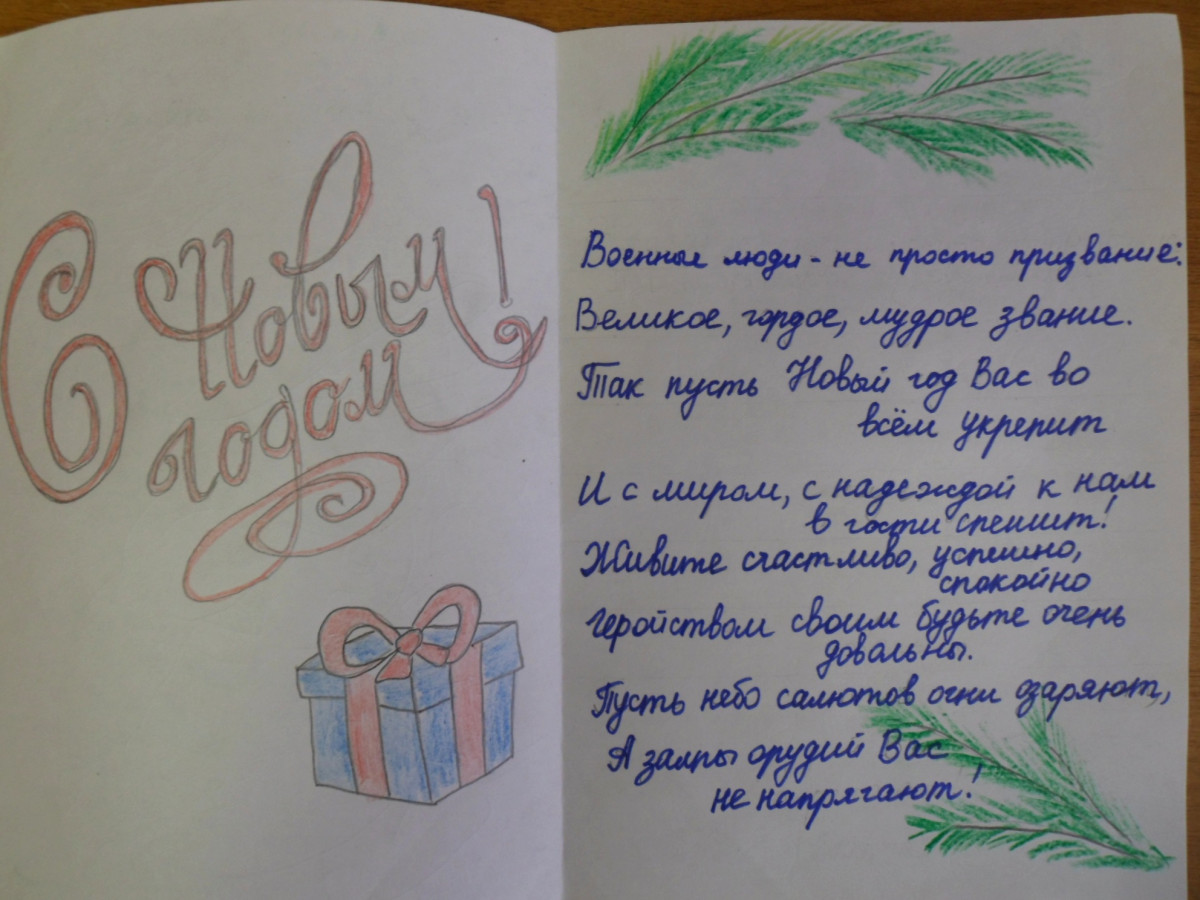 С Новым
годом!
Военные люди - не просто призвание:
Великое, гордое, мудрое звание.
Так пусть Новый год Вас во
всём укрепит
И с миром, с надеждой к нам
в гости спешит!
Живите счастливо, успешно,
спокойно
Геройством своим будьте очень
довольны.
Пусть небо салютов огни озаряют,
А залпы орудий Вас
не напрягают!